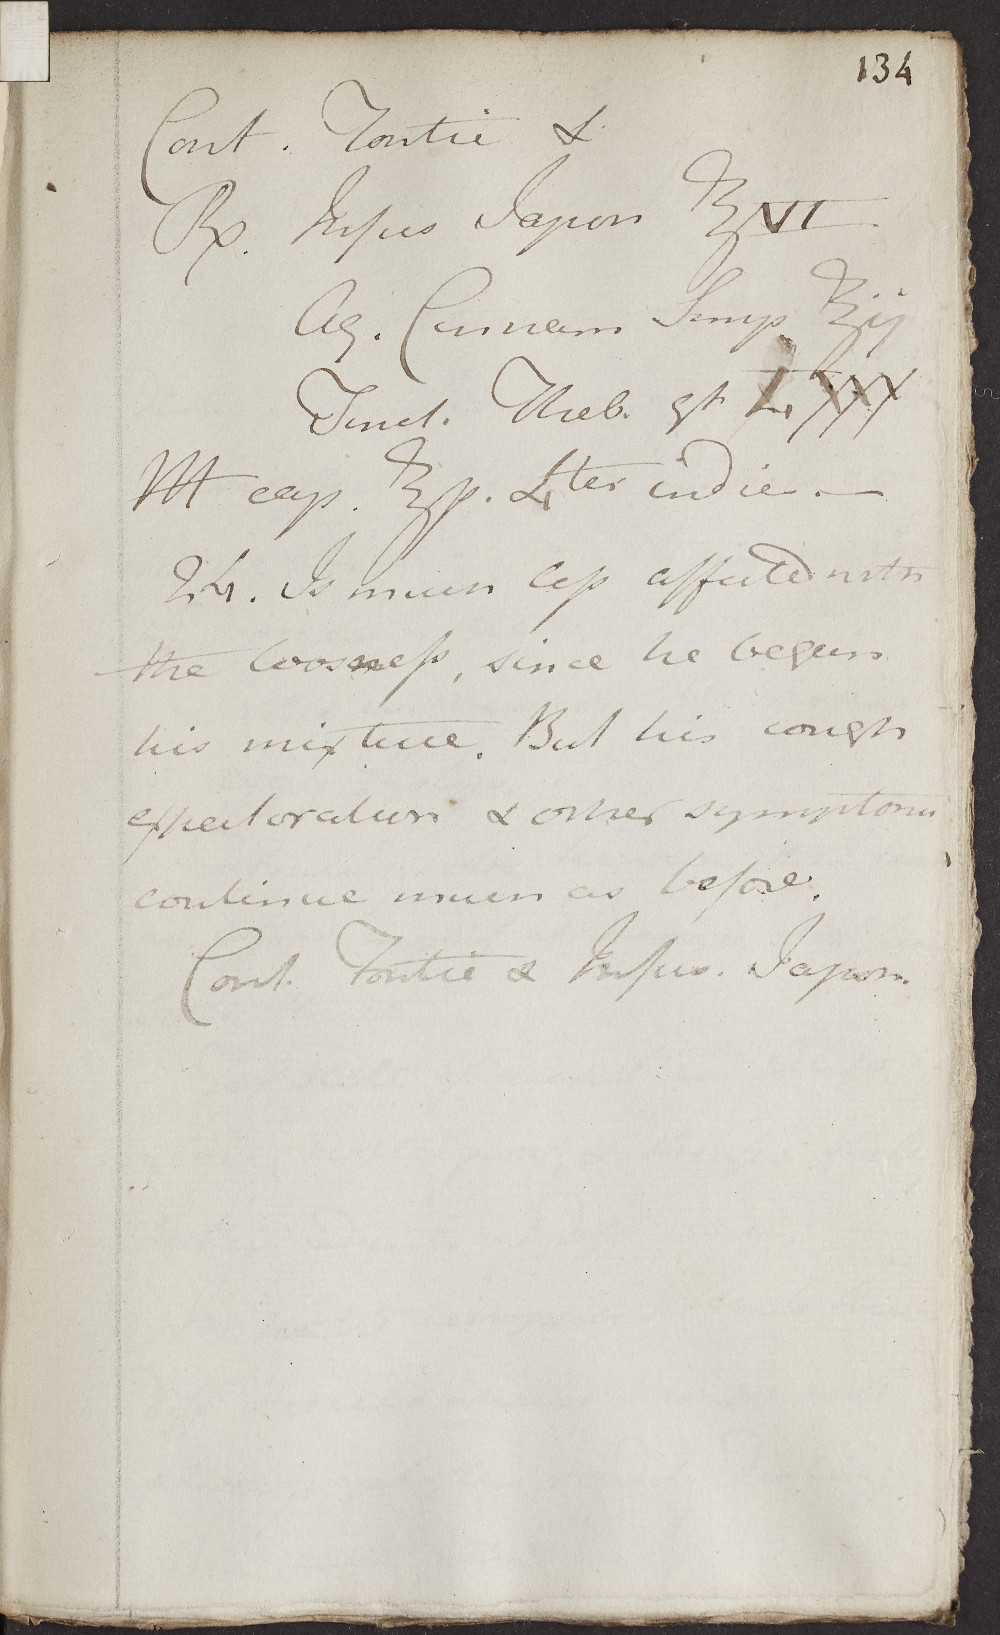 134
Cont. Tontie &
Rx. Infus Japon ℥VI
Aq. Cinnam Simp ℥ij
Tinct. Theb. gt XXX
Mt cap. ℥p. 4ter indie —
24. Is much leſs affected with
the loosneſs, since he begun
his mixture. But his cough
expectoration & other symptoms
continue much as before.
Cont. Tontie & Infus. Japon.